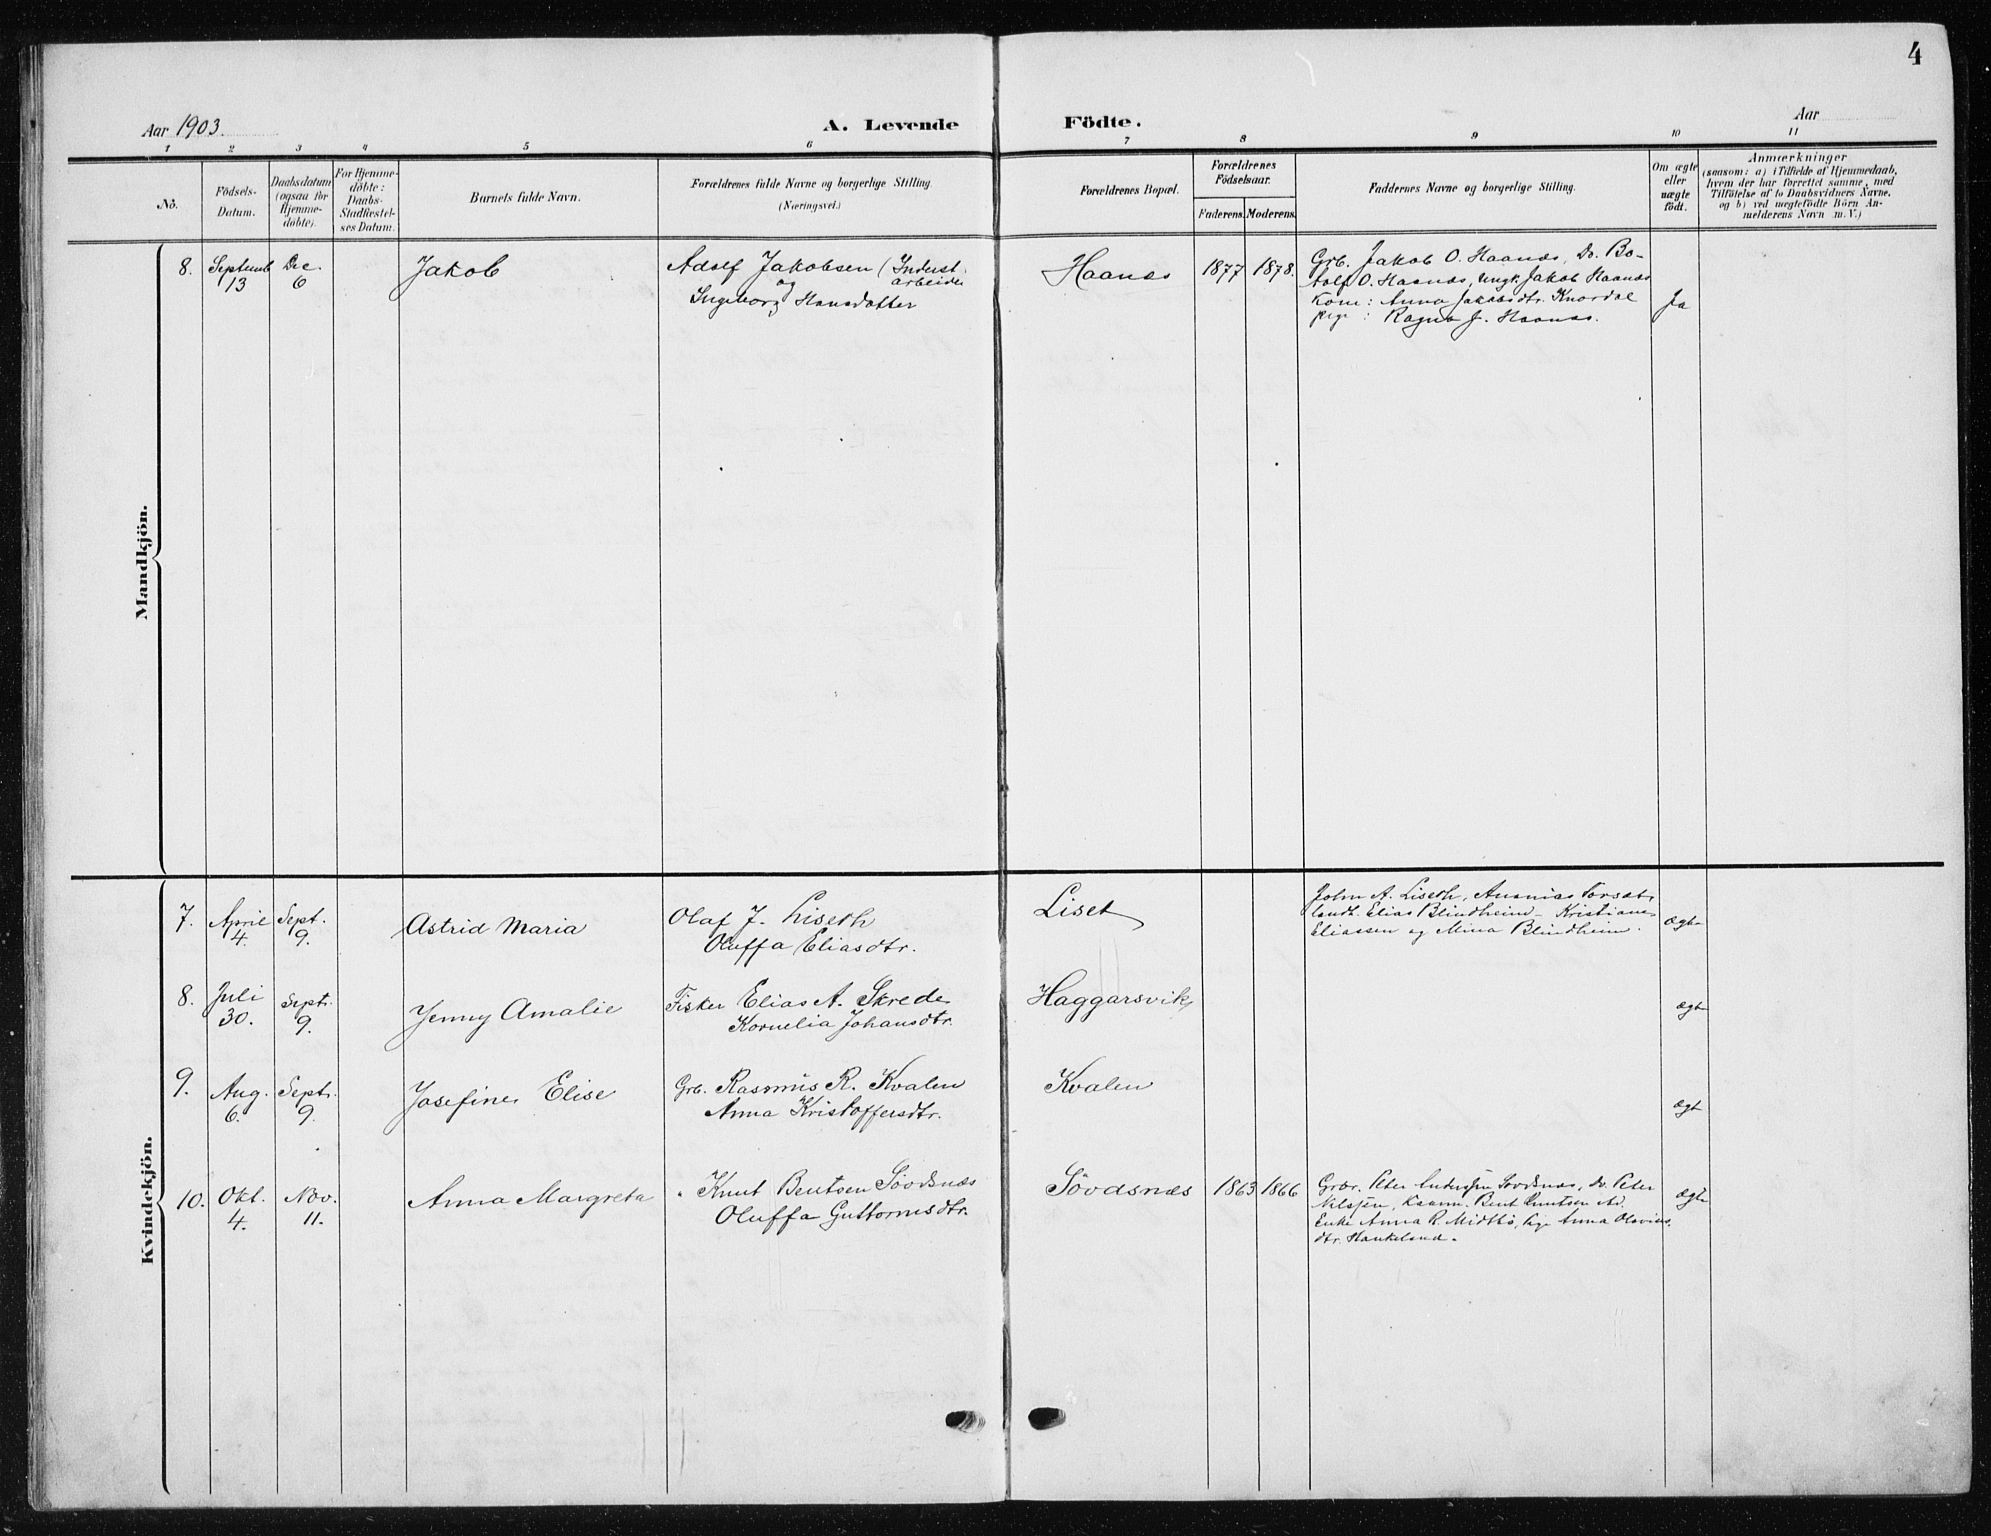 4
Aar 1903.
A. Levende Födte.
Aar
1 2 3 4 5 6 7 8 9 10 11
No.
Födsels-
Datum.
Daabsdatum
(ogsaa for
Hjemme-
døbte).
For Hjemme-
døbte:
Daabs-
Stadfæstel-
ses Datum.
Barnets fulde Navn.
Forældrenes fulde Navne og borgerlige Stilling.
(Næringsvei.)
Forældrenes Bopæl.
Forældrenes
Födselsaar.
Faderens. Moderens.
Faddernes Navne og borgerlige Stilling.
Om ægte
eller
uægte
födt.
Anmærkninger
(saasom: a) i Tilfælde af Hjemmedaab,
hvem der har forrettet samme, med
Tilföielse af to Daabsvidners Navne.
og b) ved uægtefödte Börn An-
melderens Navn m. V.)
Mandkjön.
8. Septemb 13 Dec. 6
Jakob
Adolf Jakobsen (Indust.
og arbeider
Ingeborg Hansdatter
Haanes
1877 1878.
Grb. Jakob O. Haanæs, Do. Bo-
tolf O. Haanæs, Ungk. Jakob Haanæs
Kone: Anna Jakobsdtr. Knardal
pige: Ragna J. Haanæs.
Ja
Kvindekjön.
7. April 4. Sept. 9.
Astrid Maria
Olaf J. Liseth
Oluffa Eliasdtr.
Liset
John A. Liseth, Ananias Torsæt,
landh. Elias Blindheim - Kristiane
Eliassen og Mina Blindheim.
Ægte
8. Juli 30. Sept. 9.
Jenny Amalie
Fisker Elias A. Skrede
Kornelia Johansdtr.
Haggarsvik
ægte
9. Aug. 6. Sept. 9.
Josefine Elise
Grb. Rasmus R. Kvalen
Anna Kristoffersdtr.
Kvalen
ægt
10. Okt. 4. Nov. 11.
Anna Margreta
" Knut Bentsen Sövdsnæs
Oluffa Guttormsdtr.
Sövdsnæs
1863 1866
Grbr. Peter Andersen Sövdsnæs, Do. Peter
Nilssen, Kaarm. Bent Knutsen
Enke Anna R. Midtbö, Pige Anna Olavius-
dtr. Haukeland.
ægte